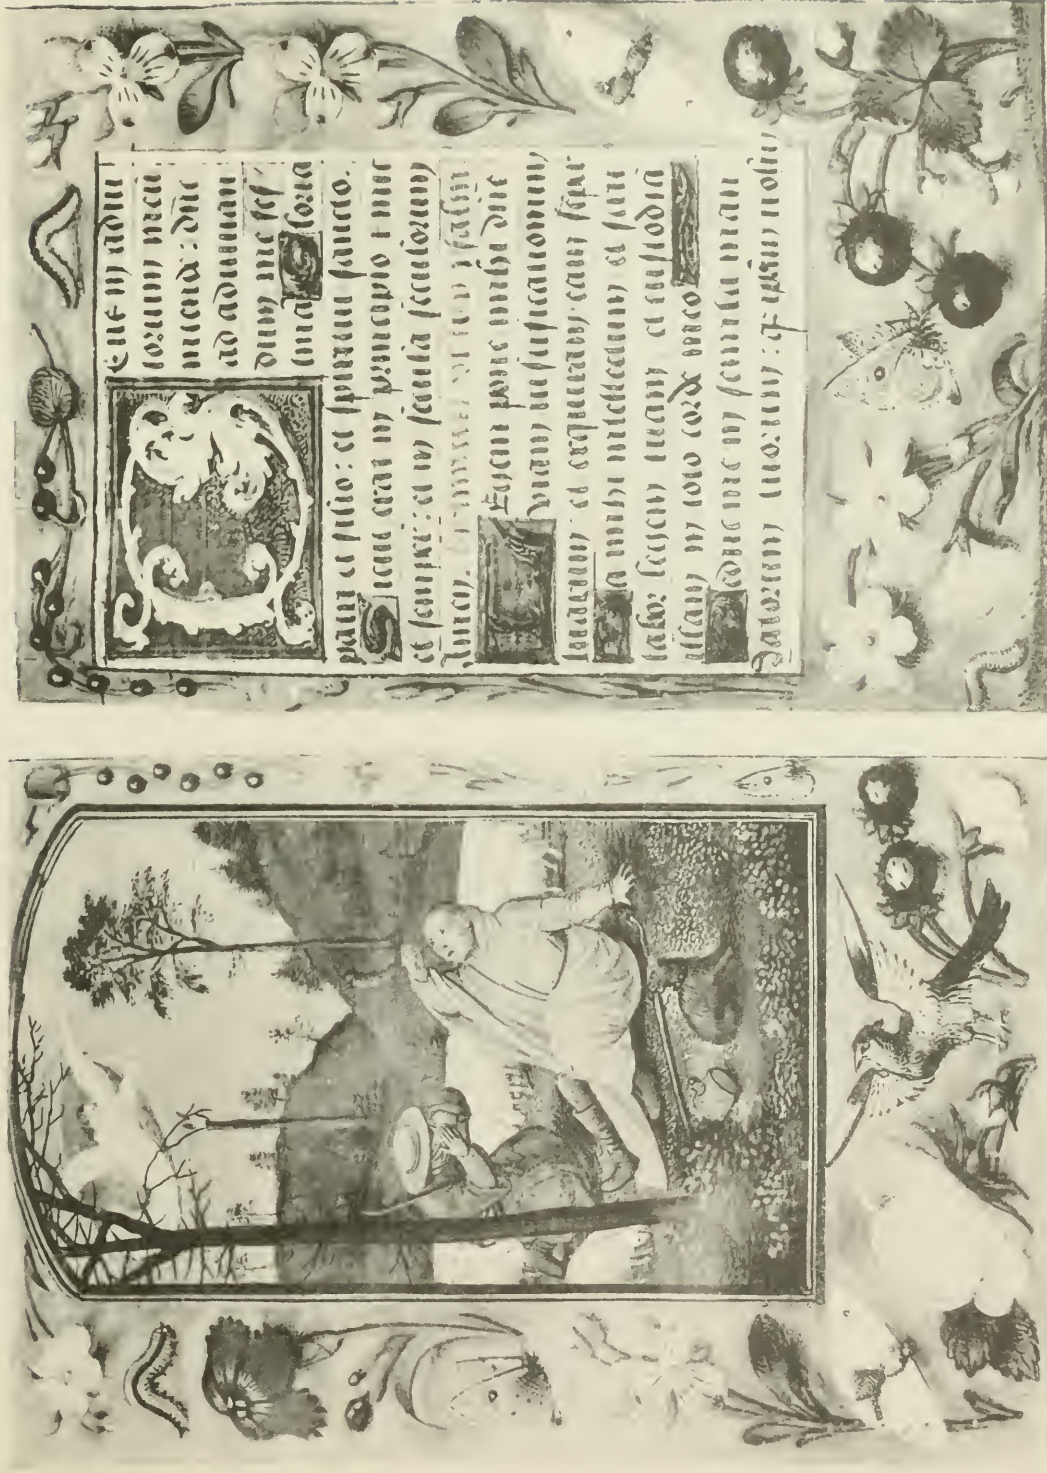 Eus in adiu
torium meū
intende: dñe
ad adiuuan
dum me fes-
tina Gloria
patri et filio: et spiritui sancto.
Sicut erat in principio ⁊ nūc
et semper: et in secula seculorum
Amen. psalm
Egem pone michi dñe
viam iustificationum
tuarum: et exquiram eam sēpr
Da michi intellectum et scru
tabor legem tuam et custodiā
illam in toto corde meo
Deduc me in semita man
datorum tuorum: q̄ ip̄am volui